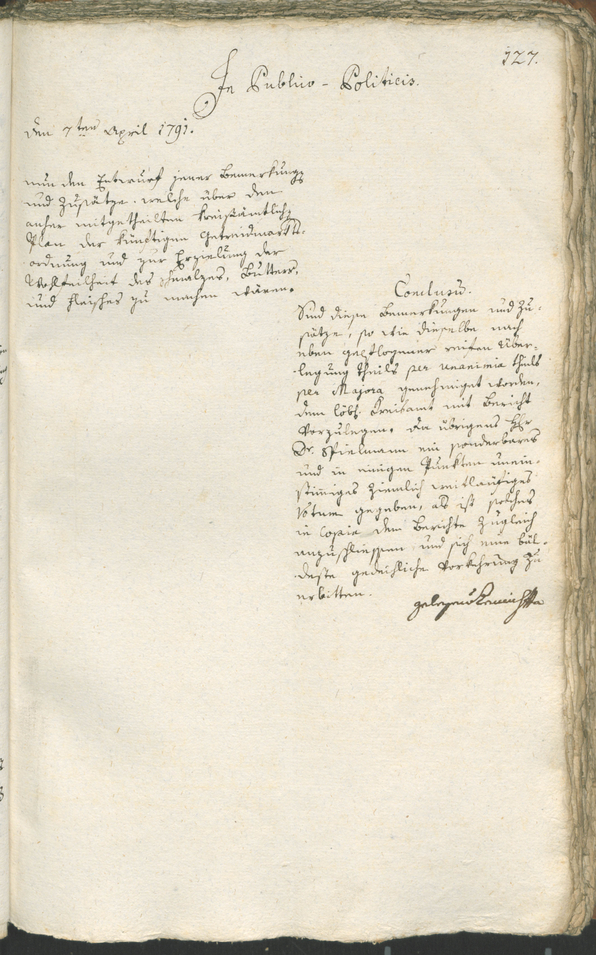 127.
In Publico-Politicis.
den 7ten April 1791.
nun den Entwurf jener Bemerkungen
und Zusätze, welche über den
anher mitgetheilten kreisämtlichen
Plan der künftigen Getreidmarkts-
ordnung und zur Erzielung der
Wohlfeilheit des Schmalzes, Butters,
und Fleisches zu machen wären.
Conclusum.
Sind diese Bemerkungen und Zu-
sätze, so wie dieselbe nach
eben gepflogener reifen Über-
legung theils per unanimia theils
per Majora genehmiget worden,
dem löbl. Kreisamt mit Bericht
vorzulegen. Da übrigens Hr
Dr. Spielmann ein sonderbares
und in einigen Punkten unein-
stimmiges ziemlich weitläufiges
Votum gegeben, als ist solches
in Copia dem Berichte zugleich
anzuschliessen und sich eine bäl-
deste gedeihliche Vorkehrung zu
erbitten.